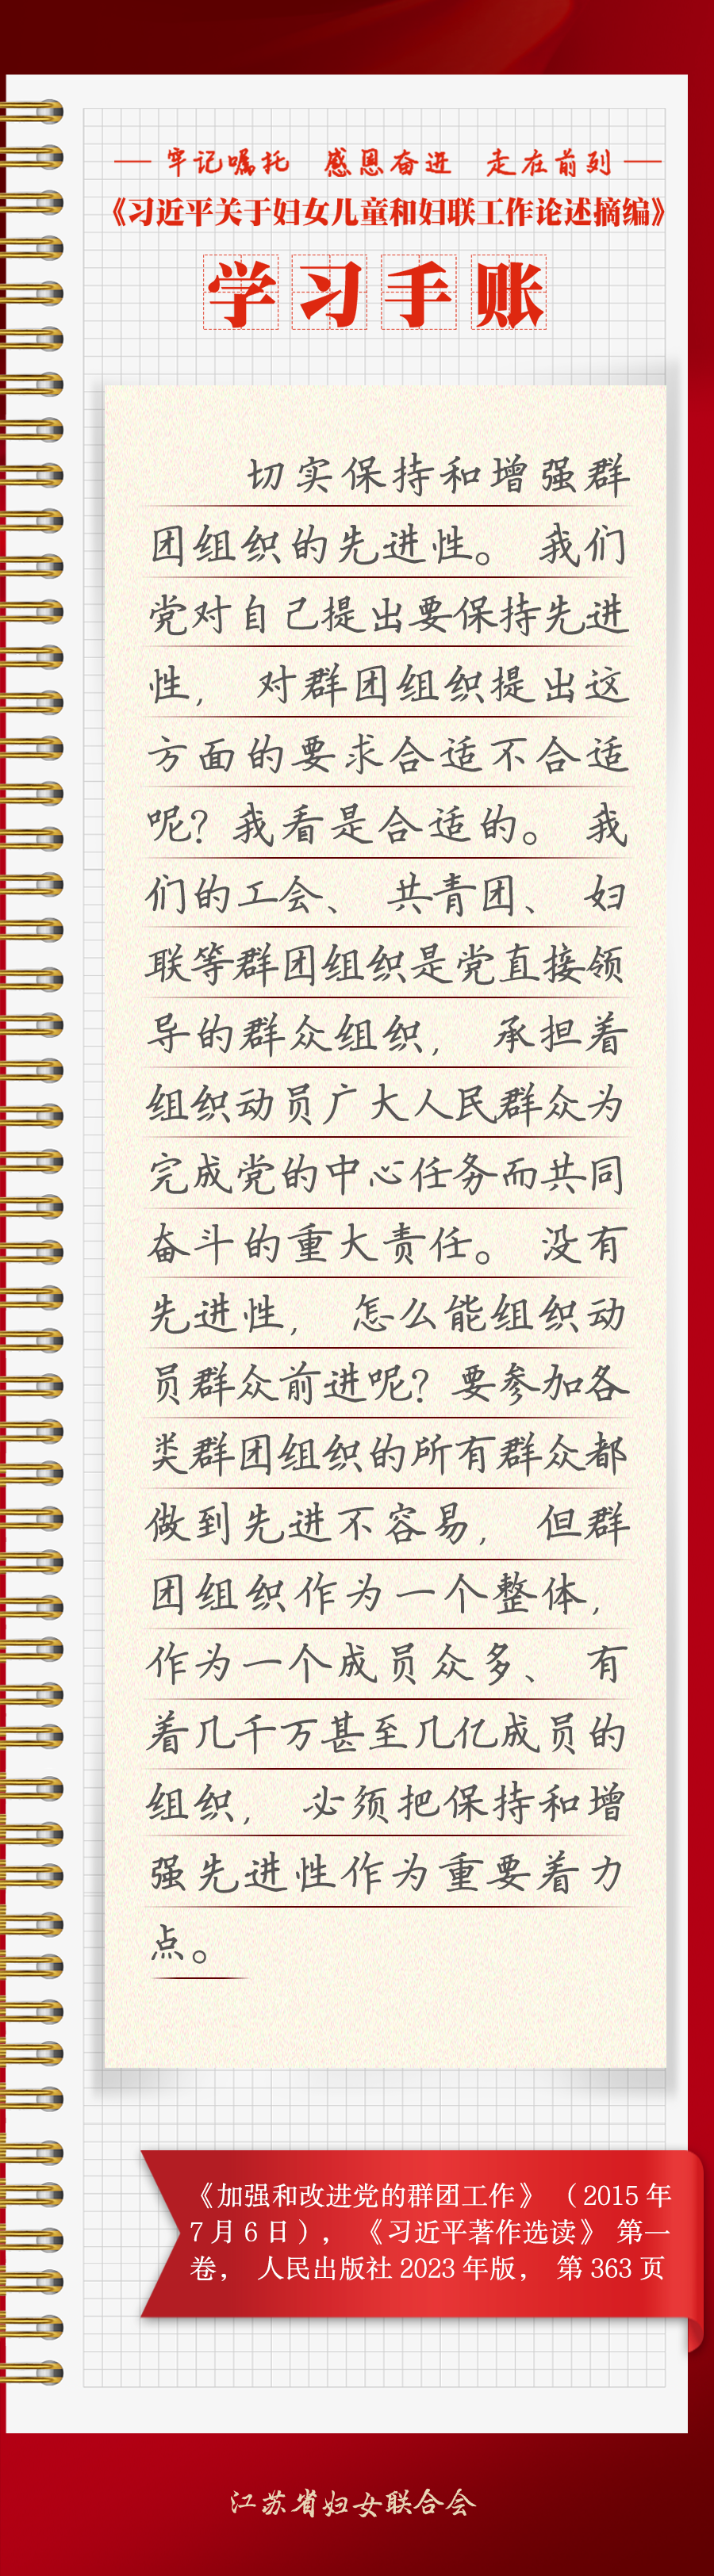 牢记嘱托 感恩奋进 走在前列
《习近平关于妇女儿童和妇联工作论述摘编》
学习手账
切实保持和增强群
团组织的先进性。我们
党对自己提出要保持先进
性，对群团组织提出这
方面的要求合适不合适
呢？我看是合适的。我
们的工会、共青团、妇
联等群团组织是党直接领
导的群众组织，承担着
组织动员广大人民群众为
完成党的中心任务而共同
奋斗的重大责任。没有
先进性，怎么能组织动
员群众前进呢？要参加各
类群团组织的所有群众都
做到先进不容易，但群
团组织作为一个整体，
作为一个成员众多、有
着几千万甚至几亿成员的
组织，必须把保持和增
强先进性作为重要着力
点。
《加强和改进党的群团工作》（2015 年
7 月 6 日），《习近平著作选读》第一
卷，人民出版社 2023 年版，第 363 页
江苏省妇女联合会